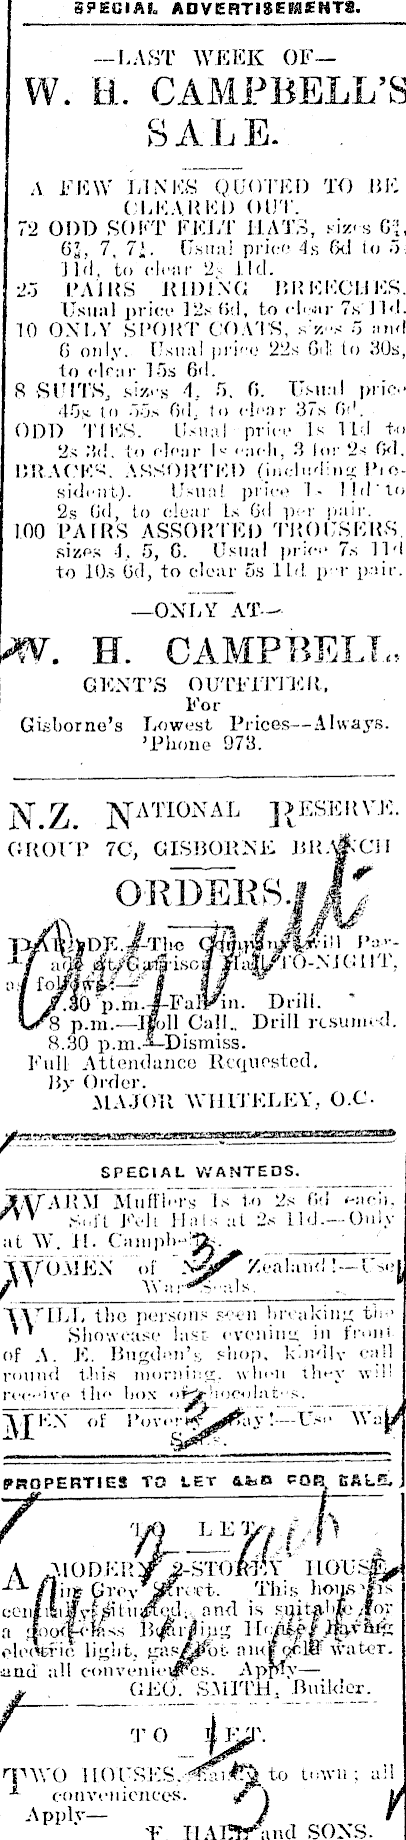 SPECIAL ADVERTISEMENTS.
—LAST WEEK OF—
W. H. CAMPBELL'S
SALE.
A FEW LINES QUOTED TO BE
CLEARED OUT.
72 ODD SOFT FELT HATS, sizes 6¾,
7, 7¼. Usual price 4s 6d to 5s
11d, to clear 2s 11d.
25 PAIRS RIDING BREECHES.
Usual price 12s 6d, to clear 7s 11d.
10 ONLY SPORT COATS, sizes 5 and
6 only. Usual price 22s 6d to 30s,
to clear 15s 6d.
8 SUITS, sizes 4, 5, 6. Usual price
45s to 55s 6d, to clear 37s 6d.
ODD TIES. Usual price 1s 11d to
2s 3d, to clear 1s each, 3 for 2s 6d.
BRACES, ASSORTED (including Pre-
sident). Usual price 1s 11d to
2s 6d, to clear 1s 6d per pair.
100 PAIRS ASSORTED TROUSERS,
sizes 4, 5, 6. Usual price 7s 11d
to 10s 6d, to clear 5s 11d per pair.
—ONLY AT—
W. H. CAMPBELL,
GENT'S OUTFITTER,
For
Gisborne's Lowest Prices—Always.
'Phone 973.
N.Z. NATIONAL RESERVE.
GROUP 7C, GISBORNE BRANCH
ORDERS.
PARADE.—The Company will Par-
ade at Garrison Hall TO-NIGHT,
as follows:—
7.30 p.m.—Fall in. Drill.
8 p.m.—Roll Call. Drill resumed.
8.30 p.m.—Dismiss.
Full Attendance Requested.
By Order.
MAJOR WHITELEY, O.C.
SPECIAL WANTEDS.
WARM Mufflers 1s to 2s 6d each.
Soft Felt Hats at 2s 11d.—Only
at W. H. Campbell's.
3
WOMEN of New Zealand!—Use
War Seals.
WILL the persons seen breaking the
Showcase last evening in front
of A. E. Bugden's shop, kindly call
round this morning, when they will
receive the box of chocolates.
MEN of Poverty Bay!—Use War
Seals.
PROPERTIES TO LET AND FOR SALE.
TO LET.
A MODERN 2-STOREY HOUSE
in Grey Street. This house is
centrally situated, and is suitable for
a good-class Boarding House, having
electric light, gas, hot and cold water,
and all conveniences. Apply—
GEO. SMITH, Builder.
TO LET.
TWO HOUSES, handy to town; all
conveniences.
Apply—
3
F. HALL and SONS.